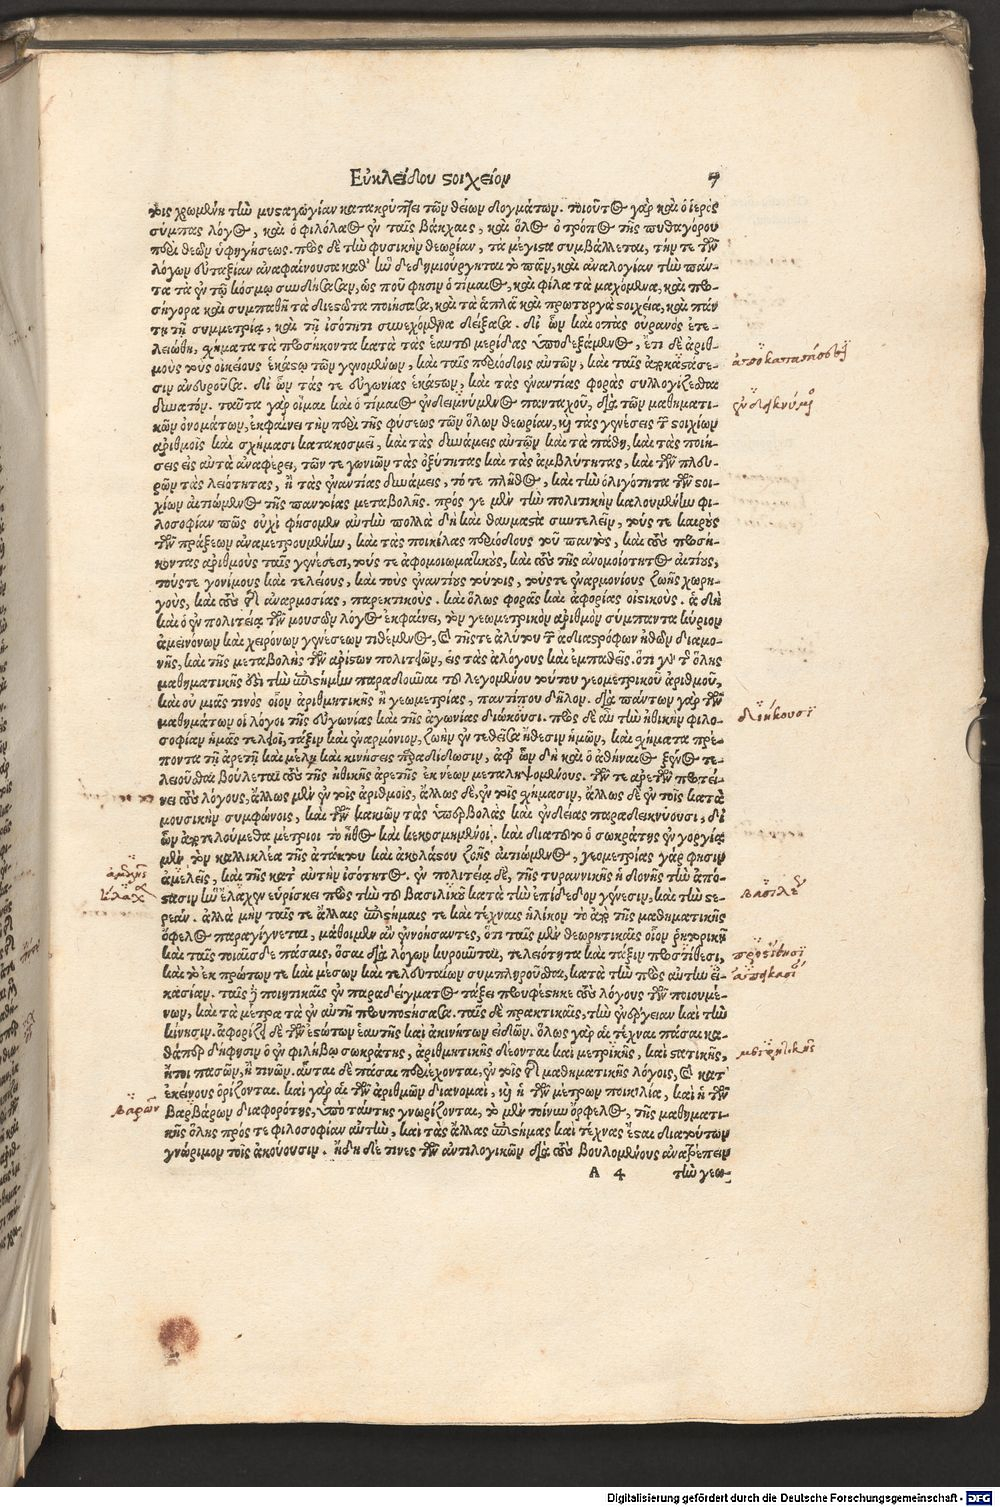 Εὐκλείδου στοιχείον 7
τοις χρωμένη τὴν μυσταγωγίαν κατακρύπτει τῶν θείων δογμάτων. τοιοῦτος γὰρ καὶ ὁ ἱερὸς
σύμπας λόγος, καὶ ὁ φιλόλαος ἐν ταῖς βάκχαις, καὶ ὅλος ὁ τρόπος τῆς πυθαγόρου
περὶ θεῶν ὑφηγήσεως. πρὸς δὲ τὴν φυσικὴν θεωρίαν, τὰ μέγιστα συμβάλλεται, τήν τε τῶν
λόγων εὐταξίαν ἀναφαίνουσα καθ' ἣν δεδημιούργηται τὸ πᾶν, καὶ ἀναλογίαν τὴν πάν-
τα τὰ ἐν τῷ κόσμῳ συνδήσασαν, ὥς πού φησιν ὁ τίμαιος, καὶ φίλα τὰ μαχόμενα, καὶ προ-
σήγορα καὶ συμπαθῆ τὰ διεστῶτα ποιήσασα, καὶ τὰ ἁπλᾶ καὶ πρωτουργὰ στοιχεῖα, καὶ πάν
τῃ τῇ συμμετρίᾳ, καὶ τῇ ἰσότητι συνεχόμενα δείξασα. δι' ὧν καὶ ὁ πᾶς οὐρανὸς ἐτε-
λειώθη, σχήματα τὰ προσήκοντα κατὰ τὰς ἑαυτοῦ μερίδας ὑποδεξάμενος, ἔτι δὲ ἀριθ-
μοὺς τοὺς οἰκείους ἑκάστῳ τῶν γενομένων, καὶ ταῖς περιόδοις αὐτῶν, καὶ ταῖς ἀποκαταστάσε-
σιν ἀνευροῦσα. δι' ὧν τάς τε εὐγονίας ἑκάστων, καὶ τὰς ἐναντίας φορὰς συλλογίζεσθαι
δυνατόν. ταῦτα γὰρ οἶμαι καὶ ὁ τίμαιος ἐνδεικνύμενος πανταχοῦ, διὰ τῶν μαθηματι-
κῶν ὀνομάτων, ἐκφαίνει τὴν περὶ τῆς φύσεως τῶν ὅλων θεωρίαν, καὶ τὰς γενέσεις τῶν στοιχίων
ἀριθμοῖς καὶ σχήμασι κατακοσμεῖ, καὶ τὰς δυνάμεις αὐτῶν καὶ τὰ πάθη, καὶ τὰς ποιή-
σεις εἰς αὐτὰ ἀναφέρει, τῶν τε γωνιῶν τὰς ὀξύτητας καὶ τὰς ἀμβλύτητας, καὶ τῶν πλευ-
ρῶν τὰς λειότητας, ἢ τὰς ἐναντίας δυνάμεις, τό τε πλῆθος, καὶ τὴν ὀλιγότητα τῶν στοι-
χίων αἰτιώμενος τῆς παντοίας μεταβολῆς. πρός γε μὴν τὴν πολιτικὴν καλουμένην φι-
λοσοφίαν πῶς οὐχὶ φήσομεν αὐτὴν πολλὰ δὴ καὶ θαυμαστὰ συντελεῖν, τούς τε καιροὺς
τῶν πράξεων ἀναμετρουμένην, καὶ τὰς ποικίλας περιόδους τοῦ παντός, καὶ τοὺς προσή-
κοντας ἀριθμοὺς ταῖς γενέσεσι, τούς τε ἀφομοιωματικούς, καὶ τοὺς τῆς ἀνομοιότητος αἰτίους,
τούς τε γονίμους καὶ τελείους, καὶ τοὺς ἐναντίους τούτοις, τούς τε ἐναρμονίους ζωῆς χορη-
γούς, καὶ τοὺς τῆς ἀναρμοσίας, παρεκτικούς. καὶ ὅλως φορᾶς καὶ ἀφορίας οἰστικούς. ἃ δὴ
καὶ ὁ ἐν πολιτείᾳ τῶν μουσῶν λόγος ἐκφαίνει, τὸν γεωμετρικὸν ἀριθμὸν σύμπαντα κύριον
ἀμεινόνων καὶ χειρόνων γενέσεων τιθέμενος, καὶ τῆς τε ἀλύτου τῶν ἀδιαστρόφων ἠθῶν διαμο-
νῆς, καὶ τῆς μεταβολῆς τῶν ἀρίστων πολιτειῶν, εἰς τὰς ἀλόγους καὶ ἐμπαθεῖς. ὅτι γὰρ τῆς ὅλης
μαθηματικῆς ἐστὶ τὴν ἐπιστήμην παραδοῦναι τοῦ λεγομένου τούτου γεωμετρικοῦ ἀριθμοῦ,
καὶ οὐ μιᾶς τινὸς οἷον ἀριθμητικῆς ἢ γεωμετρίας, παντί που δῆλον. διὰ πάντων γὰρ τῶν
μαθημάτων οἱ λόγοι τῆς εὐγονίας καὶ τῆς ἀγονίας διώκουσι. πρὸς δὲ αὖ τὴν ἠθικὴν φιλο-
σοφίαν ἡμᾶς τελεοῖ, τάξιν καὶ ἐναρμόνιον, ζωὴν ἐντεθεῖσα ἤθεσιν ἡμῶν, καὶ σχήματα πρέ-
ποντα τῇ ἀρετῇ καὶ μέλη καὶ κινήσεις παραδίδωσιν, ἀφ' ὧν δὴ καὶ ὁ ἀθηναῖος ξένος τε-
λειοῦσθαι βούλεται τοὺς τῆς ἠθικῆς ἀρετῆς ἐκ νέων μεταληψομένους. τῶν τε ἀρετῶν προτεί-
νει τοὺς λόγους, ἄλλως μὲν ἐν τοῖς ἀριθμοῖς, ἄλλως δὲ, ἐν τοῖς σχήμασιν, ἄλλως δὲ ἐν τοῖς κατὰ
μουσικὴν συμφώνοις, καὶ τῶν κακιῶν τὰς ὑπερβολὰς καὶ ἐνδείας παραδεικνύουσι, δι'
ὧν ἀποτελούμεθα μέτριοι τὸ ἦθος καὶ κεκοσμημένοι. καὶ διὰ τοῦτο ὁ σωκράτης ἐν γοργίᾳ
μὲν τὸν καλλικλέα τῆς ἀτάκτου καὶ ἀκολάστου ζωῆς αἰτιώμενος, γεωμετρίας γάρ φησιν
ἀμελεῖς, καὶ τῆς κατ' αὐτὴν ἰσότητος. ἐν πολιτείᾳ δὲ, τῆς τυραννικῆς ἡδονῆς τὴν ἀπό-
στασιν ἣν ἔλαχεν εὑρίσκει πρὸς τὴν τοῦ βασιλικοῦ κατὰ τὴν ἐπίπεδον γένεσιν, καὶ τὴν στε-
ρεάν. ἀλλὰ μὴν ταῖς τε ἄλλαις ἐπιστήμαις τε καὶ τέχναις ἡλίκον τὸ ἀπὸ τῆς μαθηματικῆς
ὄφελος παραγίγνεται, μάθοιμεν ἂν ἐννοήσαντες, ὅτι ταῖς μὲν θεωρητικαῖς οἷον ῥητορικῇ
καὶ ταῖς τοιαῖσδε πάσαις, ὅσαι διὰ λόγων κυροῦνται, τελειότητα καὶ τάξιν προστίθεσι,
καὶ τὸ ἐκ πρώτων τε καὶ μέσων καὶ τελευταίων συμπληροῦσθαι, κατὰ τὴν πρὸς αὐτὴν εἰ-
κασίαν. ταῖς δὲ ποιητικαῖς ἐν παραδείγματος τάξει προυφέστηκε τοὺς λόγους τῶν ποιουμέ-
νων, καὶ τὰ μέτρα τὰ ἐν αὐτῇ προυποστήσασα. ταῖς δὲ πρακτικαῖς, τὴν ἐνέργειαν καὶ τὴν
κίνησιν. ἀφορίζει δὲ τῶν ἑστώτων ἑαυτῆς καὶ ἀκινήτων εἰδῶν. ὅλως γὰρ αἱ τέχναι πᾶσαι κα-
θάπερ δή φησιν ὁ ἐν φιλήβῳ σωκράτης, ἀριθμητικῆς δέονται καὶ μετρικῆς, καὶ στατικῆς,
ἤτοι πασῶν, ἤ τινῶν. αὗται δὲ πᾶσαι περιέχονται, ἐν τοῖς τῆς μαθηματικῆς λόγοις, καὶ κατ'
ἐκείνους ὁρίζονται. καὶ γὰρ αἱ τῶν ἀριθμῶν διανομαὶ, καὶ ἡ τῶν μέτρων ποικιλία, καὶ ἡ τῶν
βαρβάρων διαφορότης, ὑπὸ ταύτης γνωρίζονται, τὸ μὲν τοίνυν ὄρφελος, τῆς μαθηματι-
κῆς ὅλης πρός τε φιλοσοφίαν αὐτὴν, καὶ τὰς ἄλλας ἐπιστήμας καὶ τέχνας ἔσται διὰ τούτων
γνώριμον τοῖς ἀκούουσιν. ἤδη δέ τινες τῶν ἀντιλογικῶν διὰ τοὺς βουλομένους ἀνατρέπειν
A 4 τὴν γεω-
διήκουσι
βασιλέως
προστίθησι
μετρητικῆς
βαρῶν
Digitalisierung gefördert durch die Deutsche Forschungsgemeinschaft - DFG